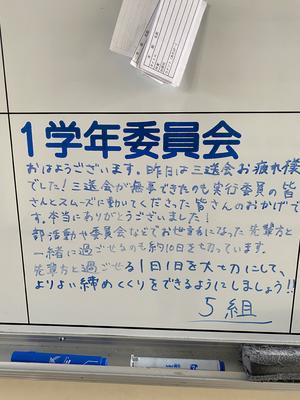 1学年委員会
おはようございます。昨日は三送会お疲れ様
でした！三送会が無事できたのも実行委員の皆
さんとスムーズに動いてくださった皆さんのおかげで
す。本当にありがとうございました！
部活動や委員会などでお世話になった先輩方と
一緒に過ごせるのも約10日を切っています。
先輩方と過ごせる1日1日を大切にして、
よりよい締めくくりをできるようにしましょう!!
5組